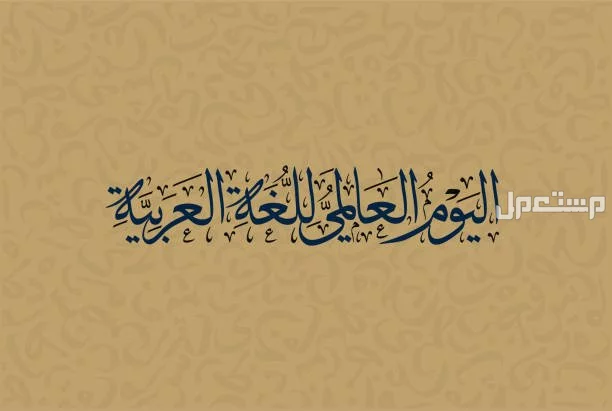 اليَوْمُ العَالَمِيُّ لِلُّغَةِ العَرَبِيَّةِ
مستعمل